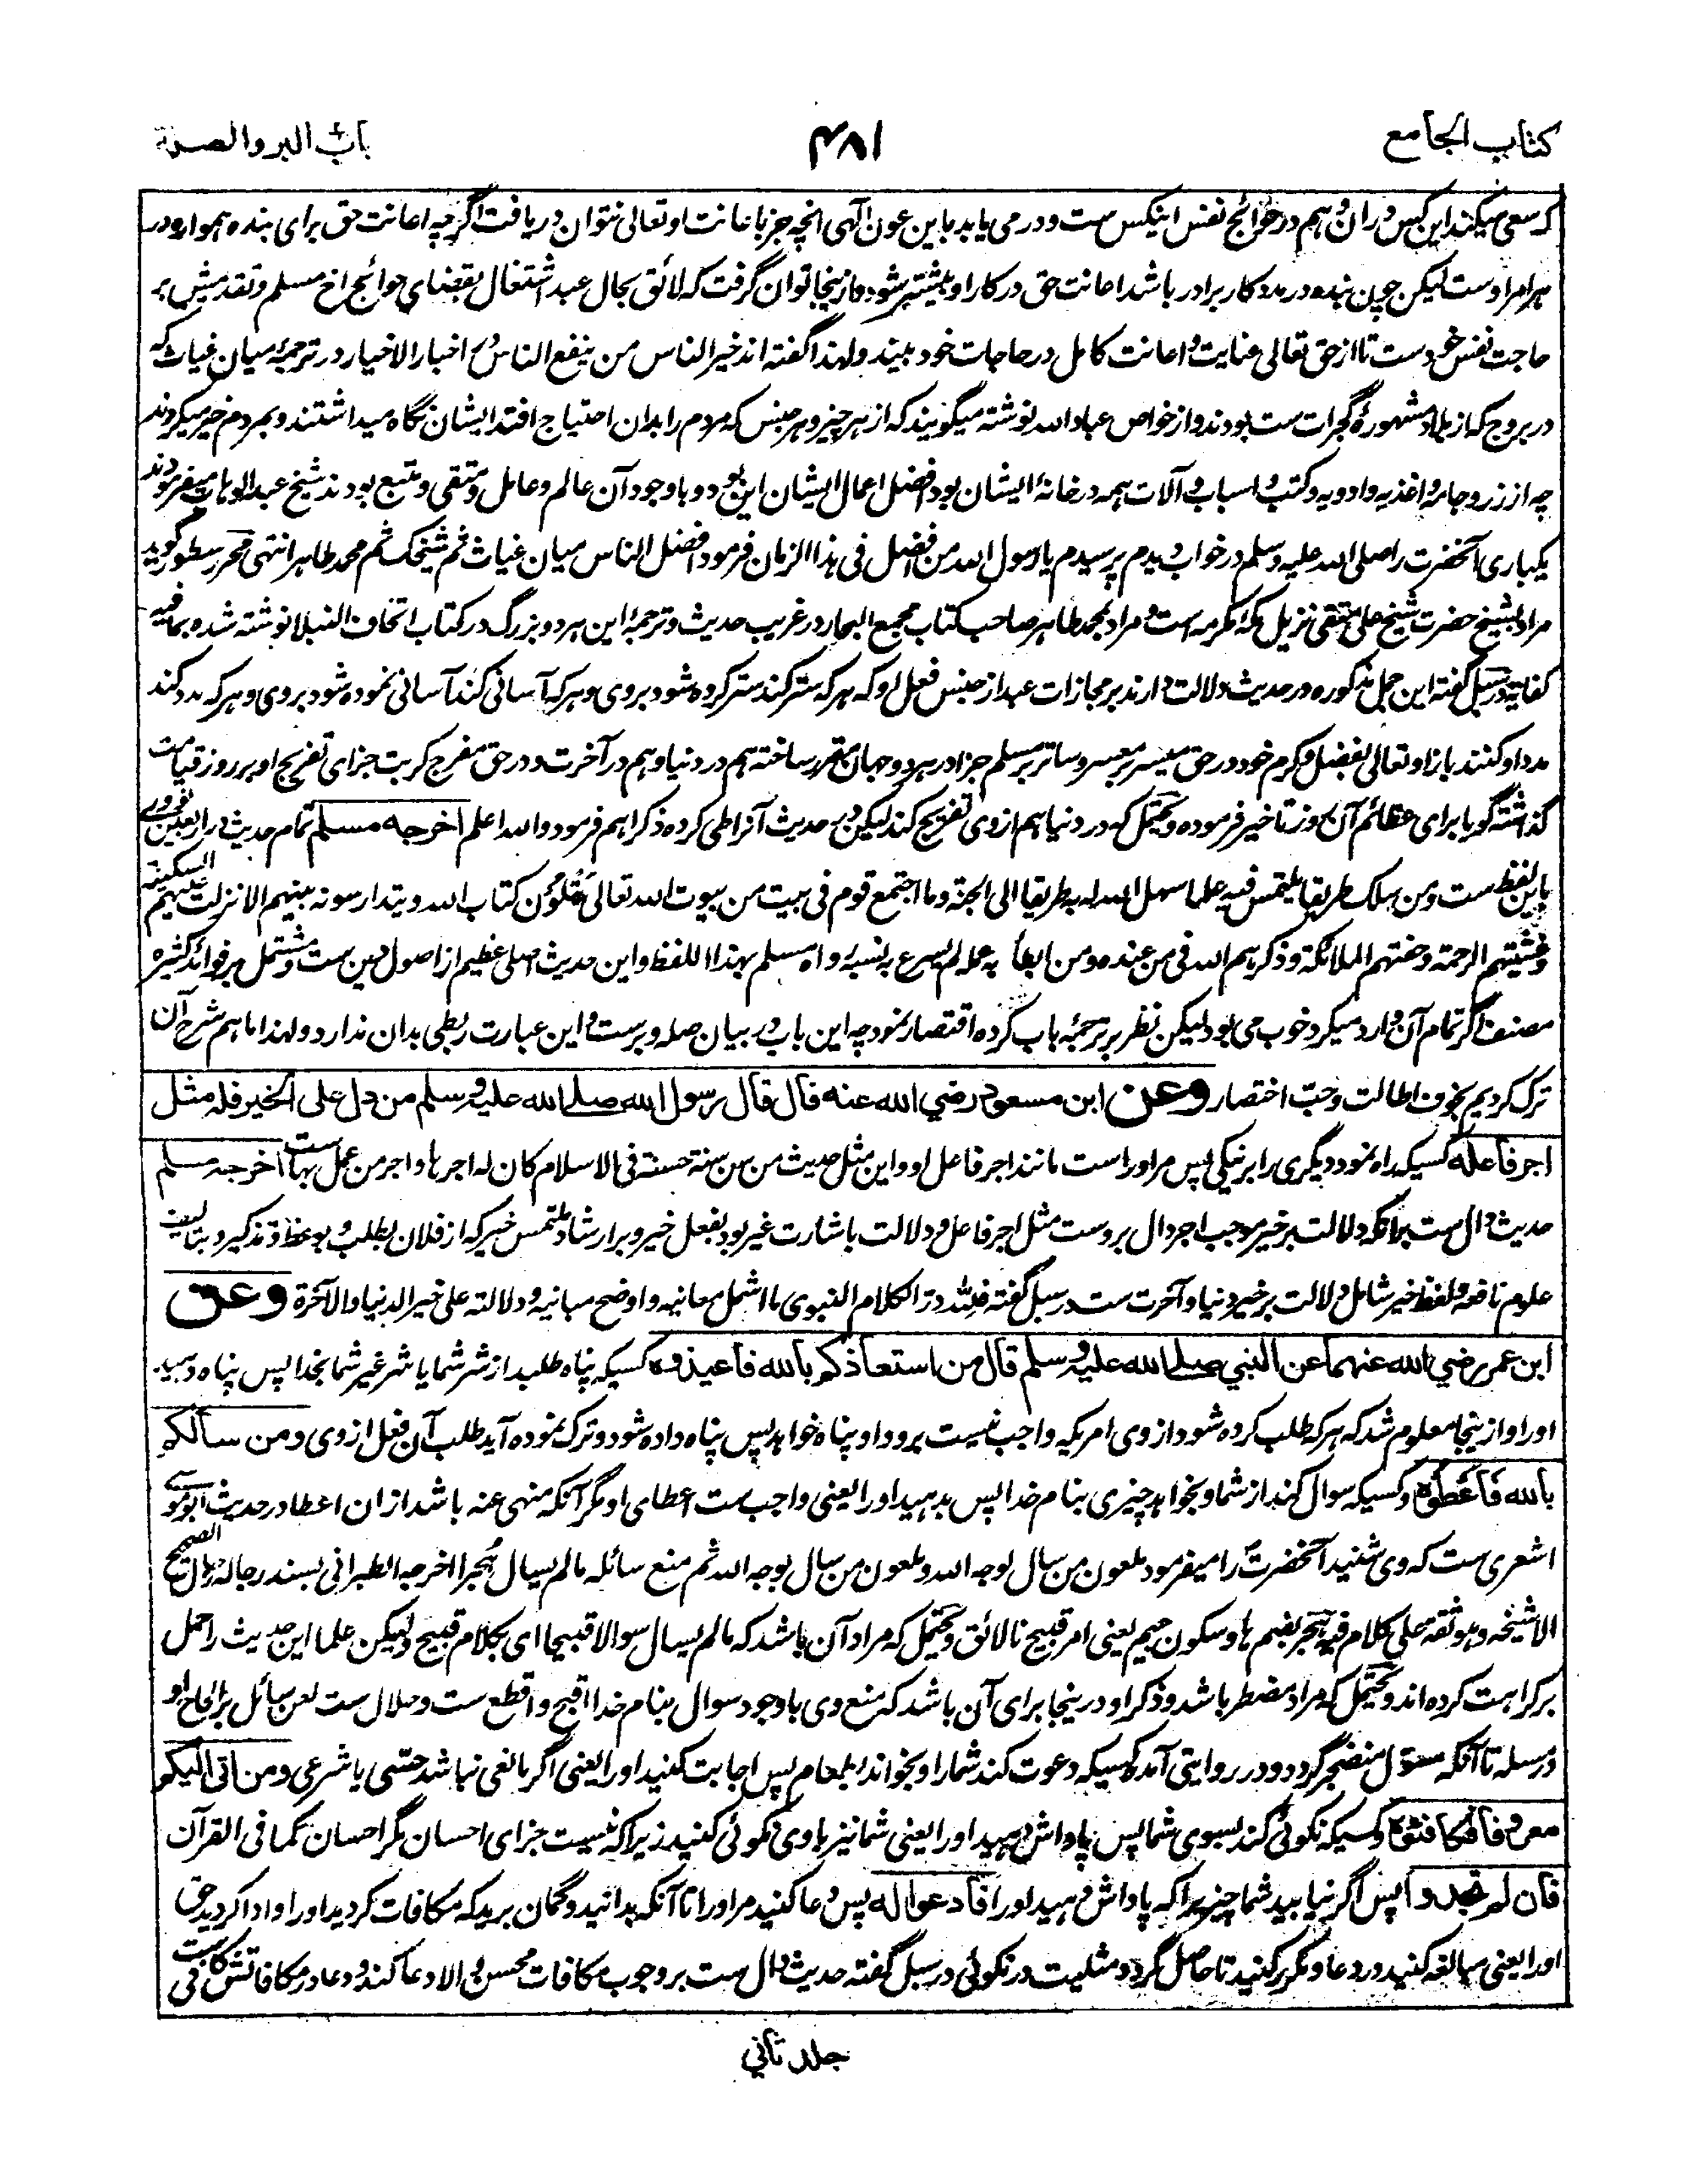 کتاب الجامع
۴۸۱
باب البر والصلة
که سعی میکند این کس در ان و هم در حوائج نفس اینکس ست و در می یابد باین عون آلهی انچه جز باعانت او تعالی نتوان دریافت اگرچه اعانت حق برای بنده همواره در
هر امر اوست لیکن چون بنده در مدد کار برادر باشد اعانت حق در کار او بیشتر شود و ازینجا توان گرفت که لائق بحال عبد اشتغال بقضای حوائج اخ مسلم و تقدیمش بر
حاجت نفس خودست تا از حق تعالی عنایت و اعانت کامل در حاجات خود بیند ولهذا گفته اند خیر الناس من ینفع الناس و در اخبار الاخیار در ترجمۂ میان غیاث که
در بروج که از بلاد مشهورۂ گجرات ست بودند و از خواص عباد الله نوشته میگویند که از هر چیز و هر جنس که مردم را بدان احتیاج افتد ایشان نگاه میداشتند و بمردم خیر میکردند
چه از زر و جامه و اغذیه و ادویه و کتب و اسباب و آلات همه در خانۂ ایشان بود افضل اعمال ایشان این بود و باوجود آن عالم و عامل و متقی و متبع بودند شیخ عبد الوهاب میفرمودند
یکباری آنحضرت را صلی الله علیه وسلم در خواب دیدم پرسیدم یا رسول الله من افضل فی هذا الزمان فرمود افضل الناس میان غیاث ثم شیخک ثم محمد طاهر انتهی محرر سطور گوید
مراد بشیخ حضرت شیخ علی متقی نزیل مکۂ مکرمه است و مراد بمحمد طاهر صاحب کتاب مجمع البحار در غریب حدیث و ترجمۂ این هر دو بزرگ در کتاب اتحاف النبلا نوشته شده بما فیه
کفایة در سبل گفته این جمل مذکوره در حدیث دلالت دارند بر مجازات عبد از جنس فعل او که هر که ستر کند ستر کرده شود بروی و هر که آسانی کند آسانی نموده شود بروی و هر که مدد کند
مدد او کنند باز او تعالی بفضل و کرم خود در حق میسر بر معسر و ساتر بر مسلم جزا در هر دو جهان مقرر ساخته هم در دنیا و هم در آخرت و در حق مفرج کربت جزای تفریج او بر روز قیامت
گذاشته گویا برای عظائم آن روز تاخیر فرموده و یحتمل که در دنیا هم از وی تفریج کند لیکن در حدیث آنرا طی کرده ذکر اهم فرمود والله اعلم اخرجه مسلم تمام حدیث در اربعین نووی
باین لفظ ست ومن سلک طریقا یلتمس فیه علما سهل الله له به طریقا الی الجنة وما اجتمع قوم فی بیت من بیوت الله تعالی یتلون کتاب الله ویتدارسونه بینهم الا نزلت علیهم السکینة
وغشیتهم الرحمة وحفتهم الملائکة وذکرهم الله فی من عنده ومن ابطأ به عمله لم یسرع به نسبه رواه مسلم بهذا اللفظ و این حدیث اصلی عظیم از اصول دین ست و مشتمل بر فوائد کثیره
مصنف اگر تمام آن وارد میکرد خوب می بود لیکن نظر بر ترجمۂ باب کرده اقتصار نمود چه این باب در بیان صله و برست و این عبارت ربطی بدان ندارد ولهذا ما هم شرح آن
ترک کردیم بخوف اطالت و حب اختصار وعن ابن مسعود رضي الله عنه قال قال رسول الله صلى الله عليه وسلم من دل على الخير فله مثل
اجر فاعله کسیکه راه نمود دیگری را بر نیکی پس مر او راست مانند اجر فاعل او و این مثل حدیث من سن سنة حسنة فی الاسلام کان له اجرها واجر من عمل بها ست اخرجه مسلم
حدیث دال ست بر آنکه دلالت بر خیر موجب اجر دال بروست مثل اجر فاعل و دلالت باشارت غیر بود بفعل خیر و بر ارشاد ملتمس خیر که از فلان بطلب و بوعظ و تذکیر و بتالیف
علوم نافعه و لفظ خیر شامل دلالت بر خیر دنیا و آخرت ست در سبل گفته فلله در الکلام النبوی ما اشمل معانیه واوضح مبانیه ودلالته علی خیر الدنیا والآخرة وعن
ابن عمر رضي الله عنهما عن النبي صلى الله عليه وسلم قال من استعاذكم بالله فاعيذوه کسیکه پناه طلبد از شر شما یا شر غیر شما بخدا پس پناه دهید
او را و ازینجا معلوم شد که هر که طلب کرده شود از وی امریکه واجب نیست برو و او پناه خواهد پس پناه داده شود و ترک نموده آید طلب آن فعل از وی ومن سألكم
بالله فاعطوه و کسیکه سوال کند از شما و بخواهد چیزی بنام خدا پس بدهید او را یعنی واجب ست اعطای او مگر آنکه منهی عنه باشد از ان اعطا در حدیث ابو موسی
اشعری ست که وی شنید آنحضرت را میفرمود ملعون من سال لوجه الله وملعون من سال بوجه الله ثم منع سائله ما لم یسال هجرا اخرجه الطبرانی بسند رجاله رجال الصحیح
الا شیخه وهو ثقة علی کلام فیه هجر بضم ها و سکون جیم یعنی امر قبیح نالائق و یحتمل که مراد آن باشد که ما لم یسال سوالا قبیحا ای بکلام قبیح و لیکن علما این حدیث را حمل
بر کراهت کرده اند و یحتمل که مراد مضطر باشد و ذکر او درینجا برای آن باشد که منع وی باوجود سوال بنام خدا اقبح و اقطع ست و حلال ست لعن سائل بر الحاح او
در مسئله تا آنکه مسؤل منضجر گردد و در روایتی آمده کسیکه دعوت کند شما را و بخواند بطعام پس اجابت کنید او را یعنی اگر مانعی نباشد حسی یا شرعی ومن اتى اليكم
معروفا فكافئوه و کسیکه نکوئی کند بسوی شما پس پاداش دهید او را یعنی شما نیز باوی نکوئی کنید زیرا که نیست جزای احسان مگر احسان کما فی القرآن
فان لم تجدوا پس اگر نیابید شما چیزیرا که پاداش دهید او را فادعوا له پس دعا کنید مر او را تا آنکه بدانید و گمان برید که مکافات کردید او را و ادا کردید حق
او را یعنی مبالغه کنید در دعا و تکریر کنید تا حاصل گردد مثلیت در نکوئی در سبل گفته حدیث دال ست بر وجوب مکافات محسن و الا دعا کند و دعا در مکافاتش کافی ست
جلد ثاني